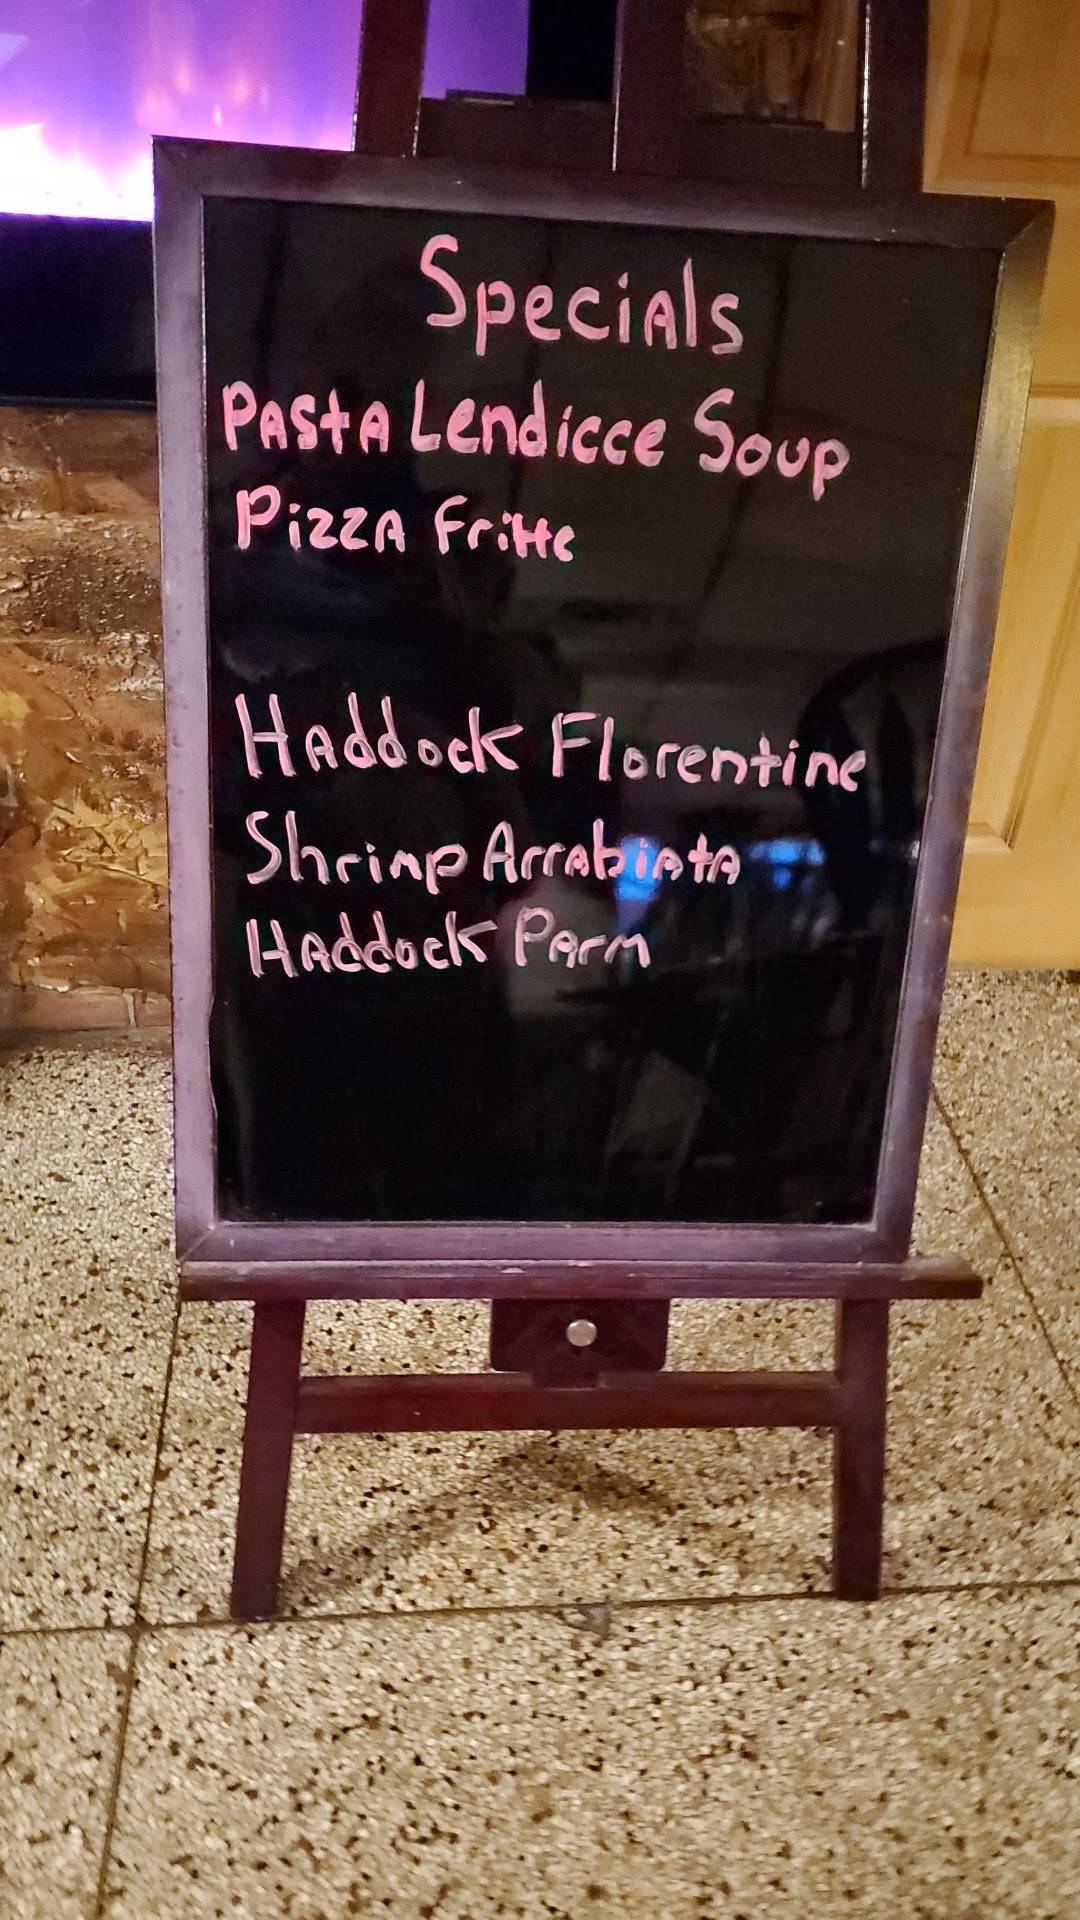 Specials
Pasta Lendicce Soup
Pizza Fritte
Haddock Florentine
Shrimp Arrabiata
Haddock Parm